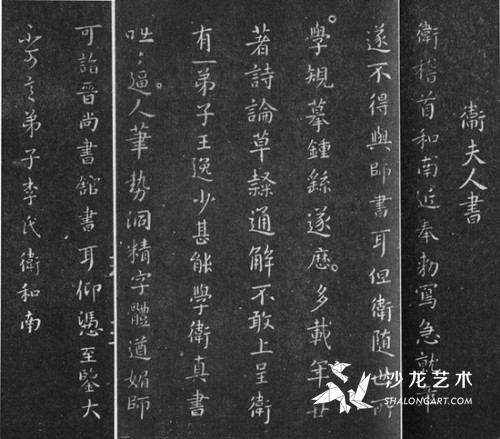 衛夫人書
衛稽首和南近奉勅寫急就章
遂不得與師書耳但衛隨世所
學規摹鍾繇遂歷多載年廿
著詩論草隸通解不敢上呈衛
有一弟子王逸少甚能學衛真書
咄〻逼人筆勢洞精字體遒媚師
可詣晉尚書舘書耳仰憑至鑒大
不可言弟子李氏衛和南
沙龙艺术
SHALONGART.COM